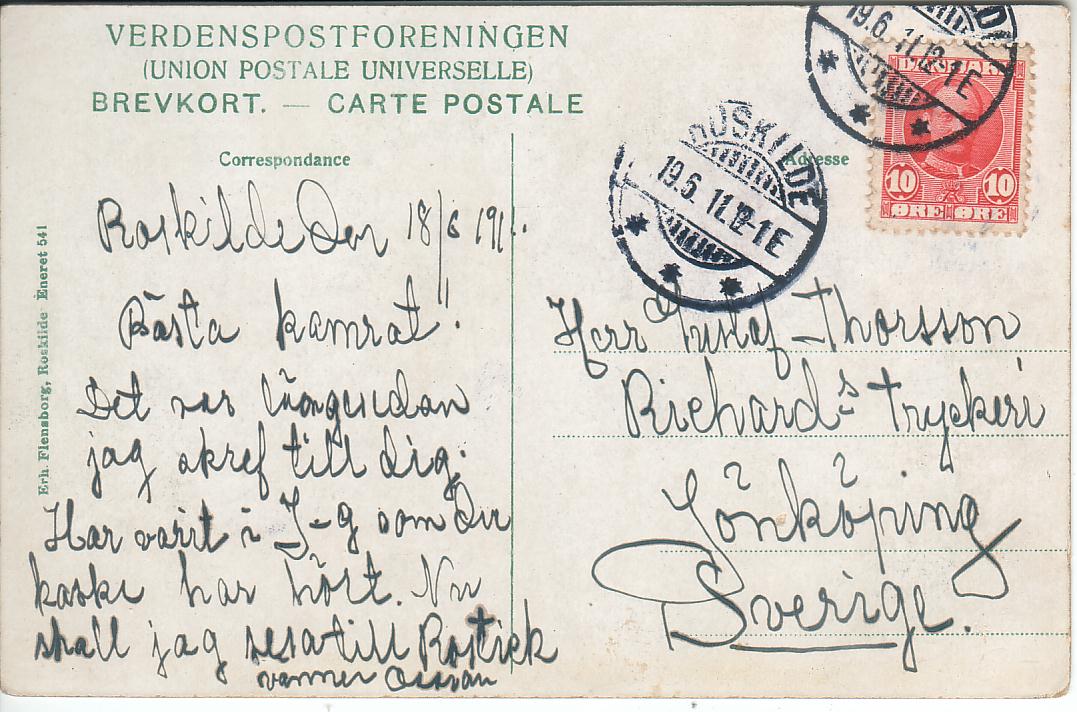 VERDENSPOSTFORENINGEN
(UNION POSTALE UNIVERSELLE)
BREVKORT. — CARTE POSTALE
Correspondance
Adresse
Roskilde Den 18/6 1911.
Bästa kamrat!
Det var längesedan
jag skref till dig.
Har varit i J-g som du
kaske har hört. Nu
skall jag resa till
vänner
Erh. Flensborg, Roskilde Eneret 541
ROSKILDE
19.6.11.12-1E
19.6.11.12-1E
DANMARK
10 10
ØRE ØRE
Herr Gustaf Thorsson
Richards Tryckeri
Jönköping
Sverige.